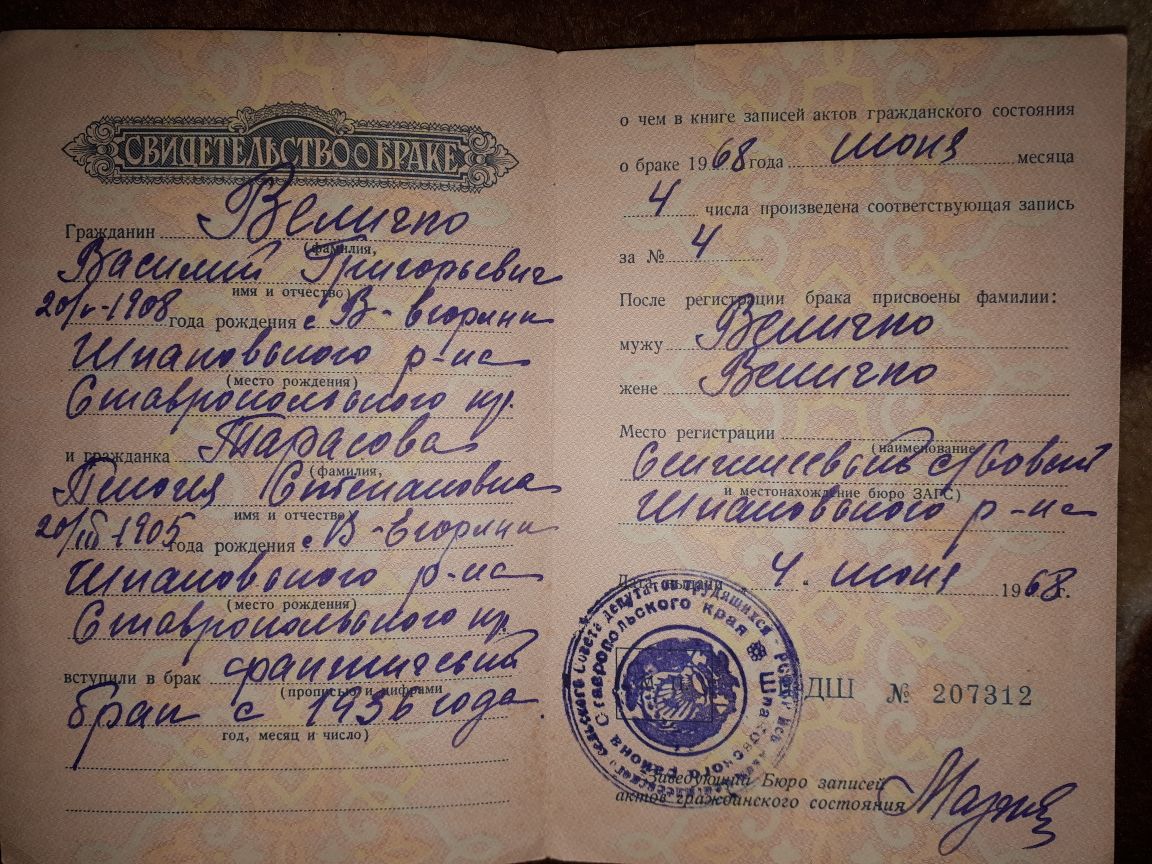 СВИДЕТЕЛЬСТВО О БРАКЕ
Гражданин Величко
(фамилия,
Василий Григорьевич
имя и отчество)
20/V-1908 года рождения с В-Егорлык
Шпаковского р-на
(место рождения)
Ставропольского кр.
и гражданка Тарасова
(фамилия,
Пелогия Степановна
имя и отчество)
20/III 1905 года рождения с В-Егорлык
Шпаковского р-на
(место рождения)
Ставропольского кр.
вступили в брак фактический
(прописью и цифрами
брак с 1936 года.
год, месяц и число)
о чем в книге записей актов гражданского состояния
о браке 1968 года июня месяца
4 числа произведена соответствующая запись
за № 4
После регистрации брака присвоены фамилии:
мужу Величко
жене Величко
Место регистрации
(наименование
с/Совет
и местонахождение бюро ЗАГС)
Шпаковского р-на
Дата выдачи 4. июня 1968 г.
Сельского Совета депутатов трудящихся
Шпаковского района Ставропольского края
ДШ № 207312
Заведующий Бюро записей
актов гражданского состояния